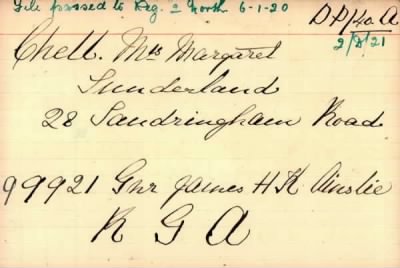 File passed to Reg. 2 North 6-1-20
DP/40.A
2/8/21
Chell. Mrs Margaret
Sunderland
28 Sandringham Road
99921 Gnr James H K Ainslie
R G A